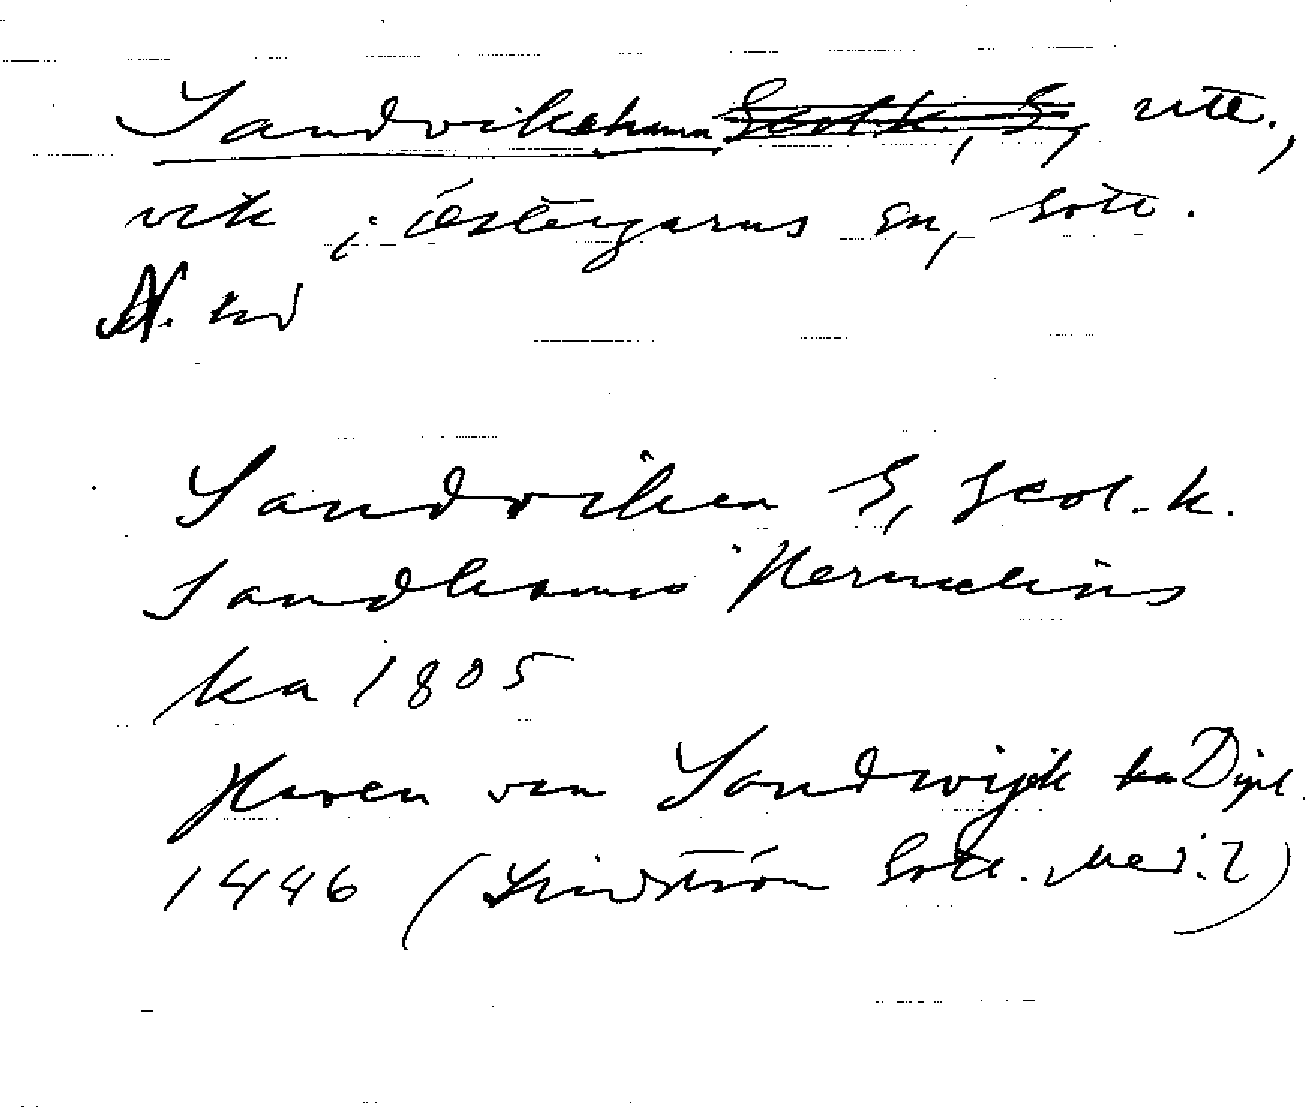 Sandvikshamn Geol.k., G, utt.,
vik i Östergarns sn, Gotl.
N. hd
Sandviken G, Geol.k.
Sandhamn Hermelins
ka 1805
Haven van Sandwijk ka Dipl.
1446 (Lindström Gotl. Med. 2)